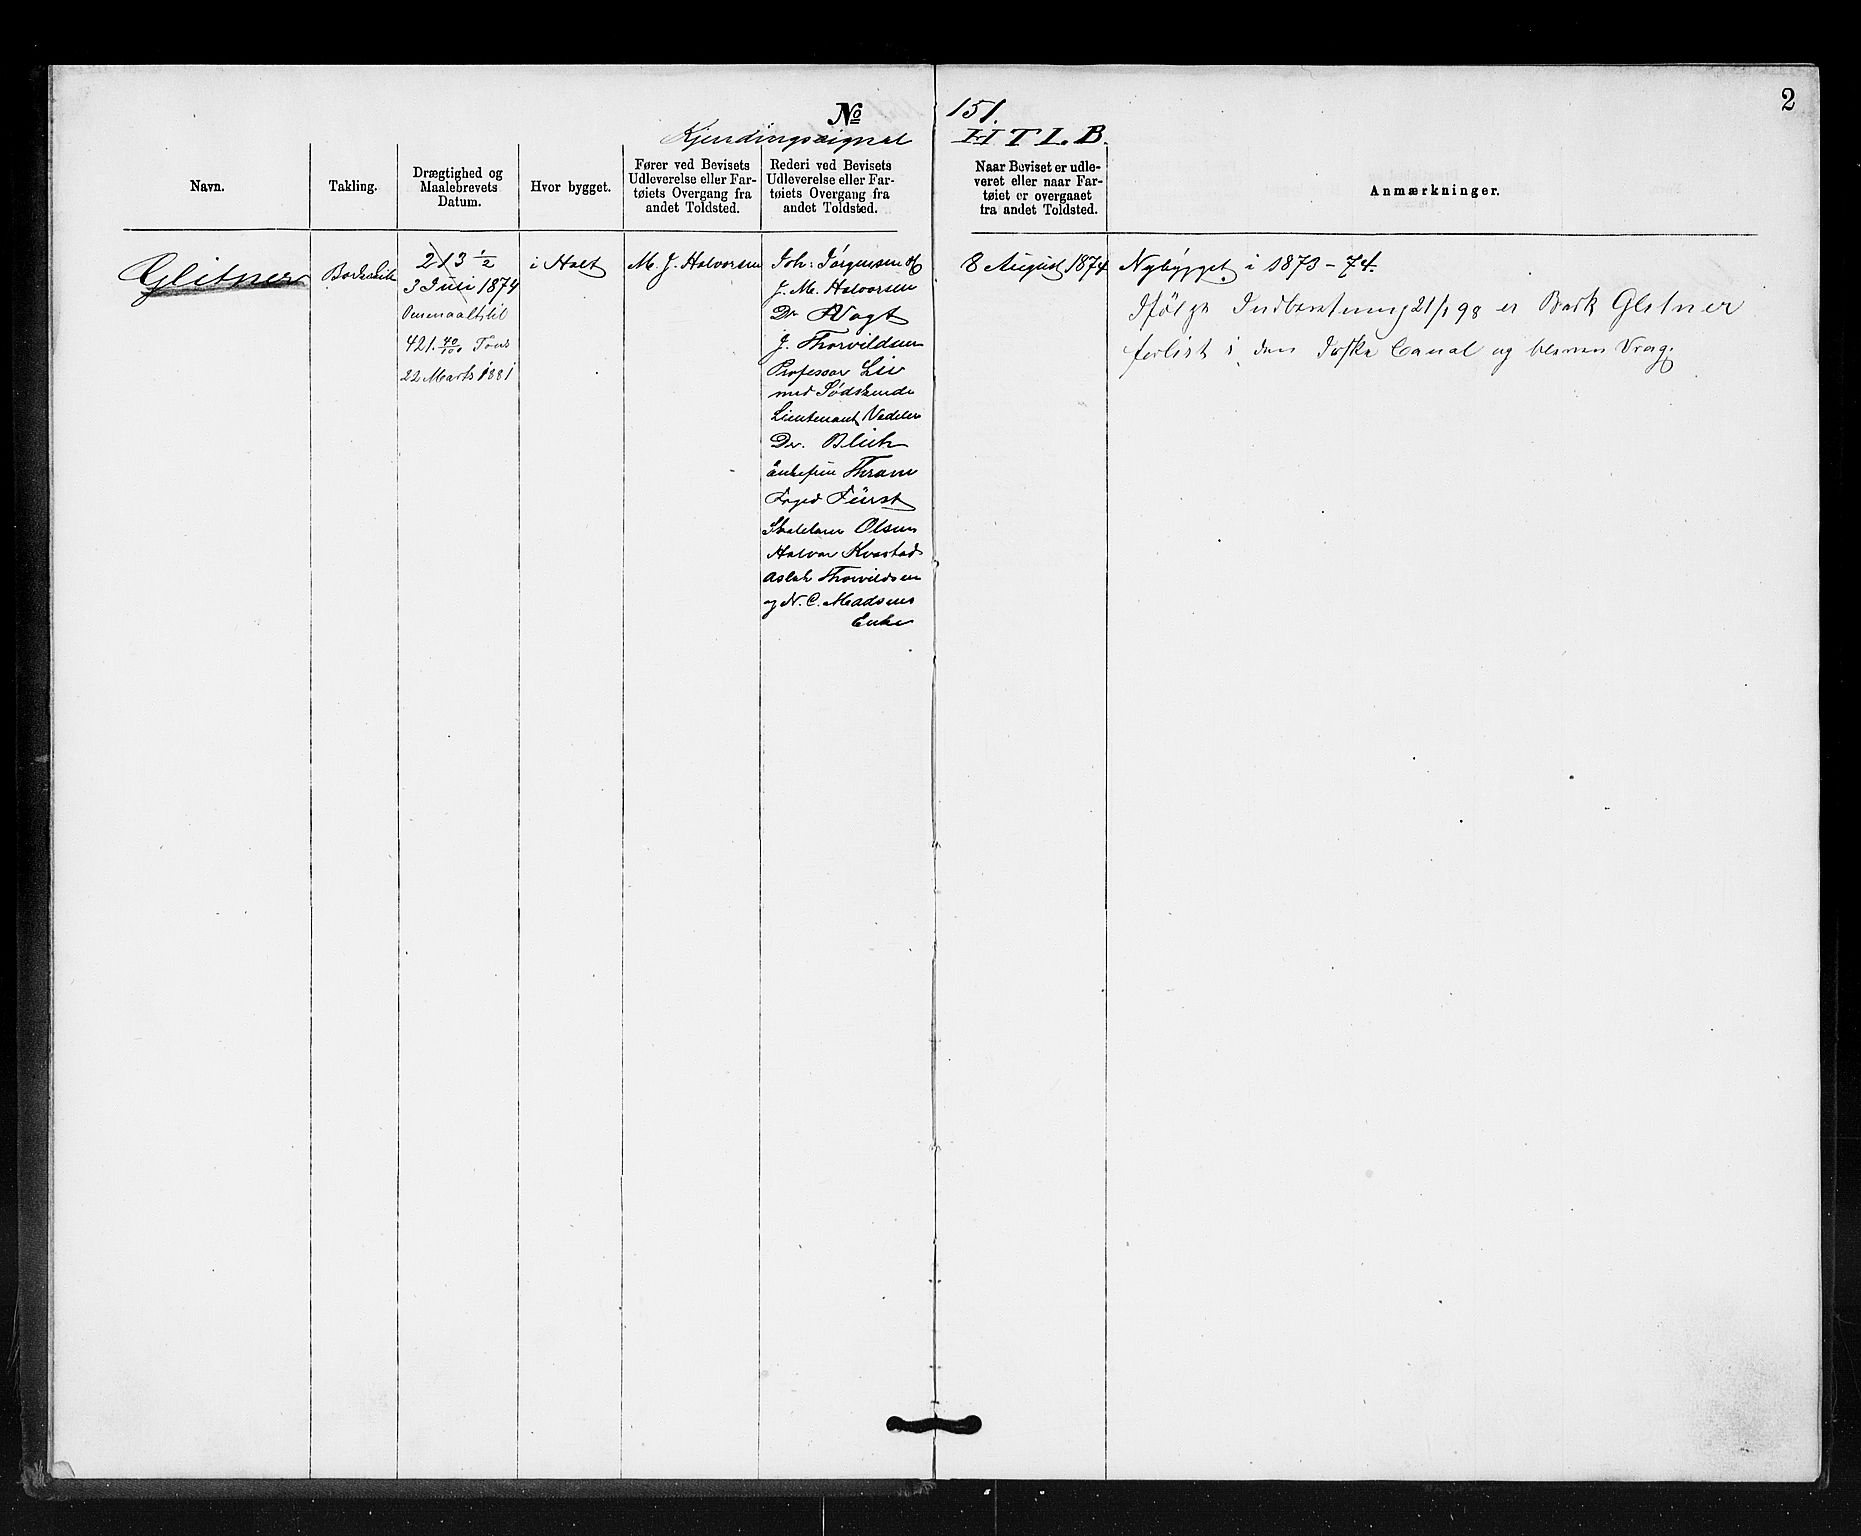 2
No 151.
Kjendingssignal HTLB.
Navn.
Takling.
Drægtighed og
Maalebrevets
Datum.
Hvor bygget.
Fører ved Bevisets
Udleverelse eller Far-
tøiets Overgang fra
andet Toldsted.
Rederi ved Bevisets
Udleverelse eller Far-
tøiets Overgang fra
andet Toldsted.
Naar Beviset er udle-
veret eller naar Far-
tøiet er overgaaet
fra andet Toldsted.
Anmærkninger.
Glitner
213 1/2
3 Juli 1874
Ommaalt til
421. 40/100 Tons
22 Marts 1881
i Holt
M. J. Halvorsen
Joh: Jørgensen
J. M. Halvorsen
Dr Vogt
J. Thorvildsen
Professor Lie
med Sødskende
Lieutenant Vedeler
Dr. Blich
Enkefru Thrane
Foged Fürst
Olsen
Halvor Kvastad
Aslak Thorvildsen
og N. C. Madsens
Enke
8 August 1874
Nybygget i 1873-74.
Ifølge Indberetning 21/1 98 er Bark Glitner
forlist i den Canal og bleven Vrag.